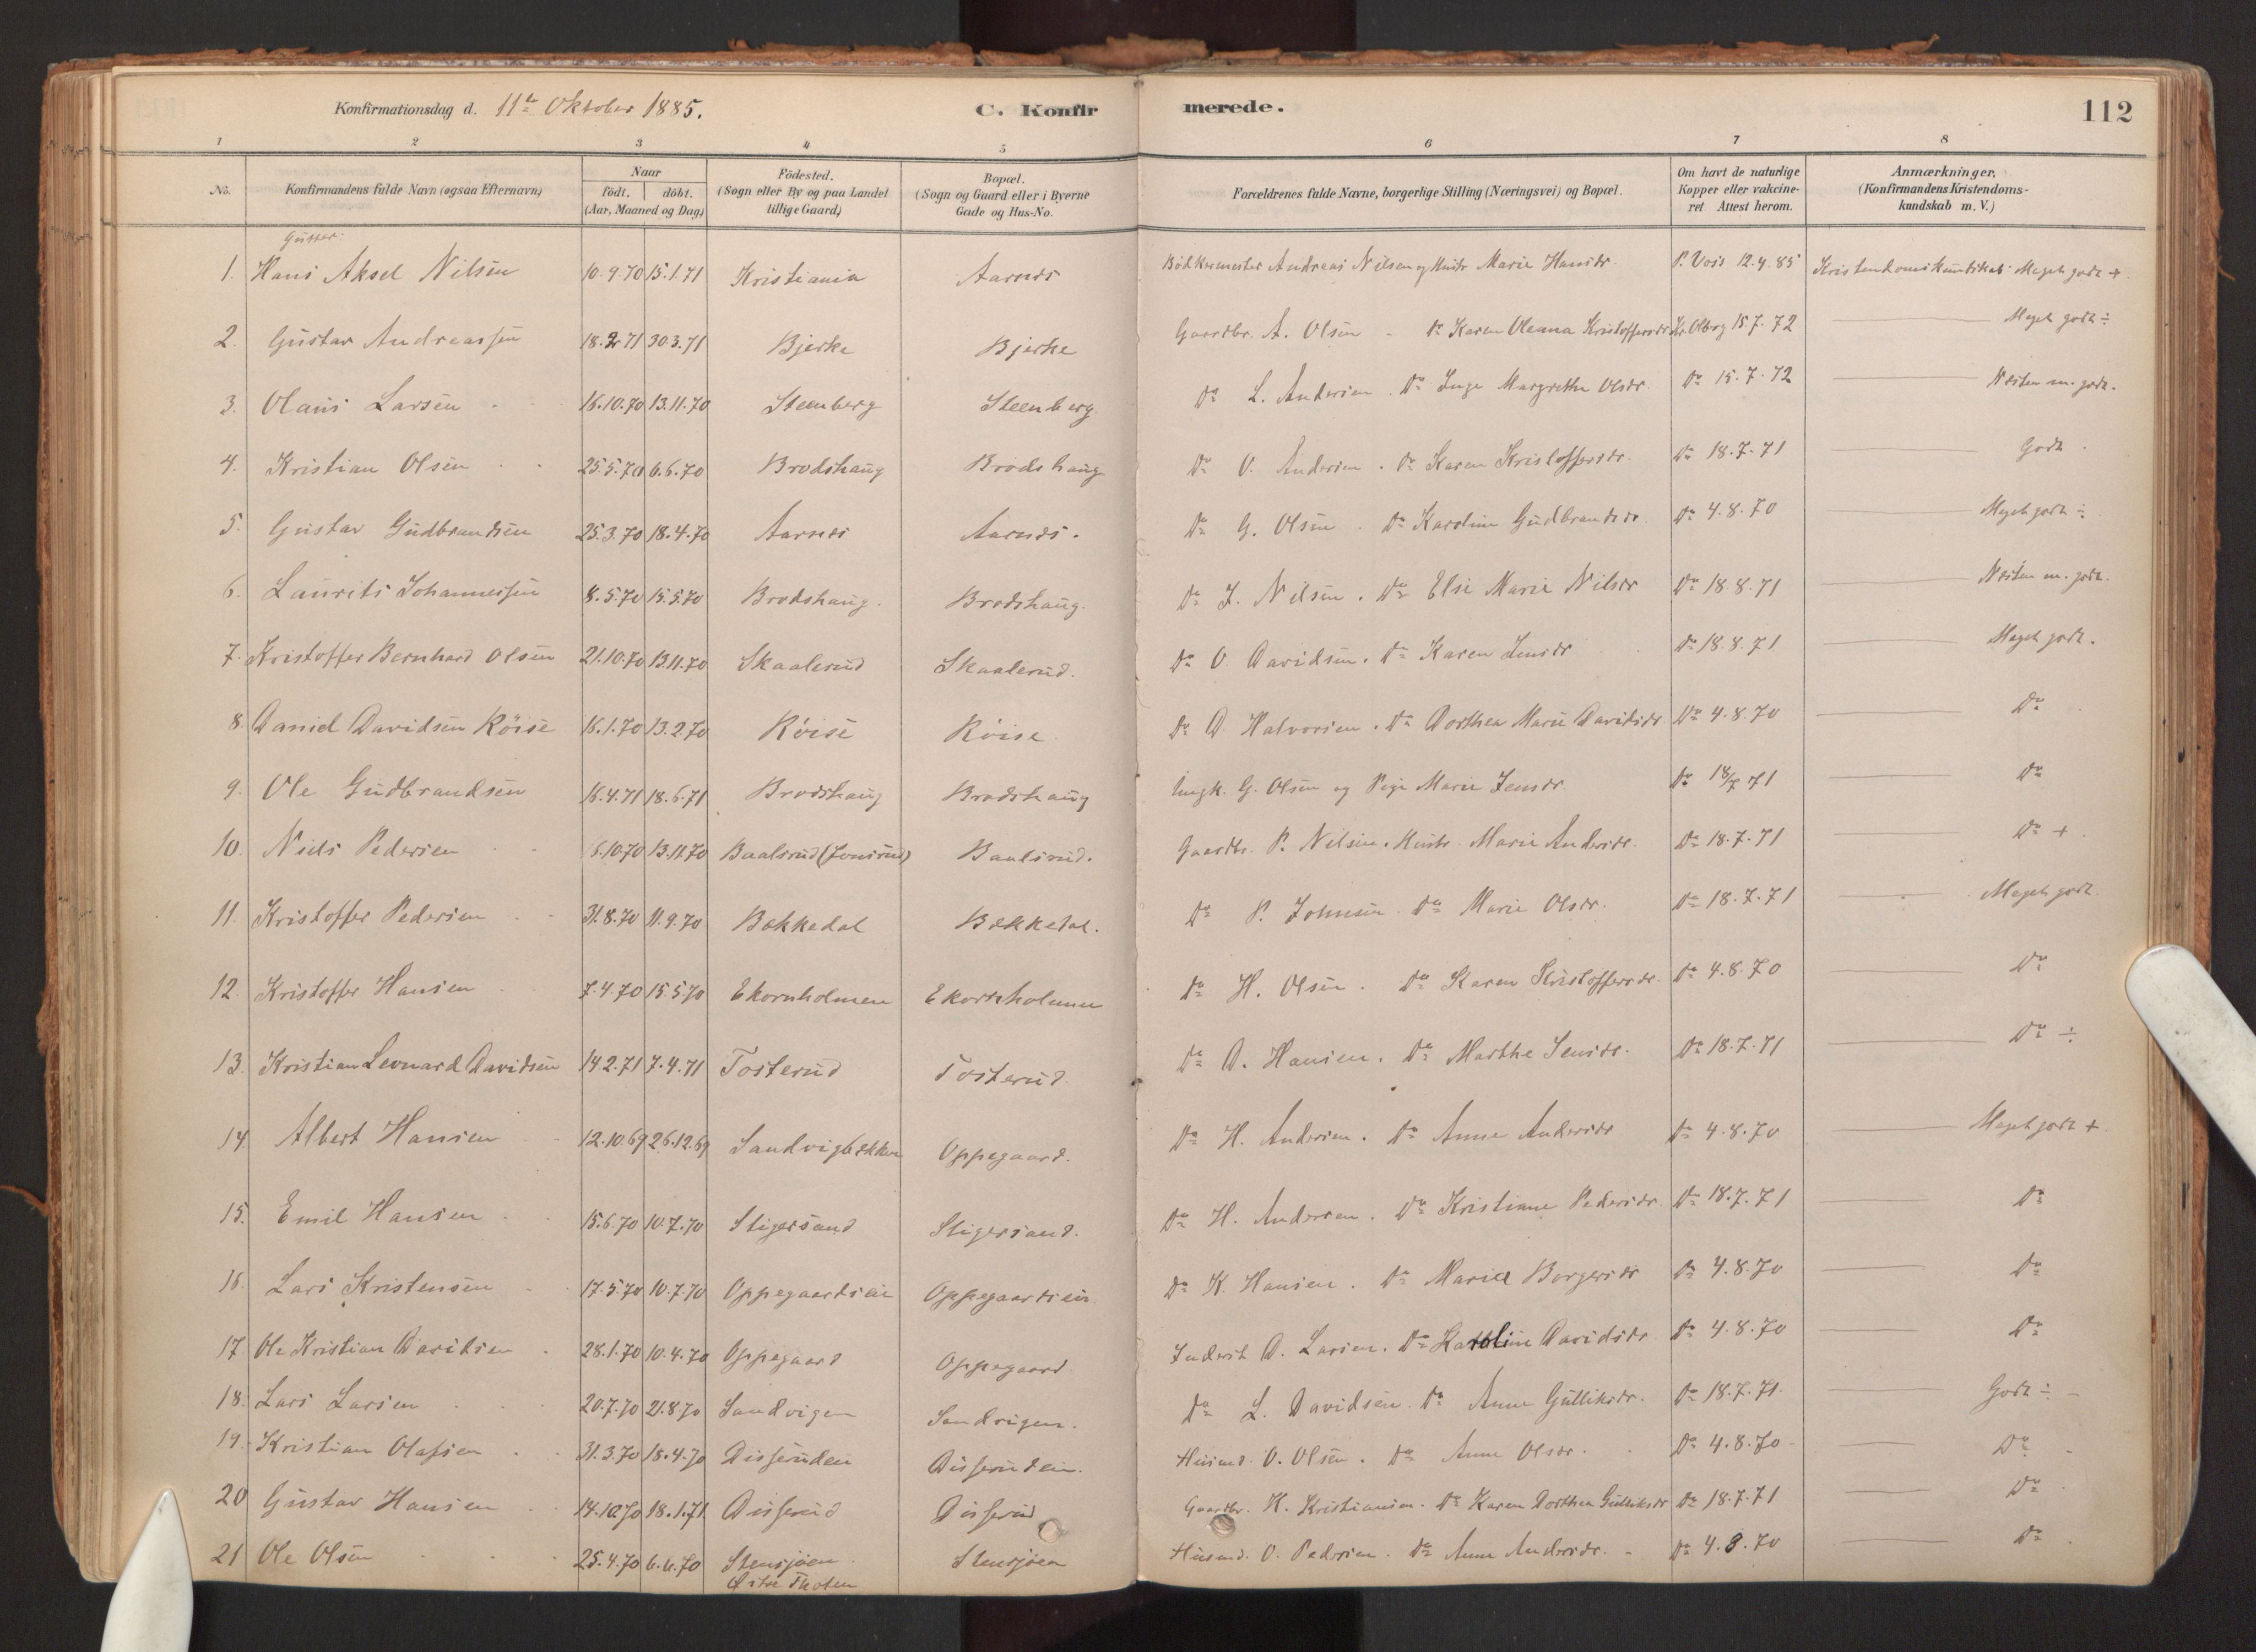 Konfirmationsdag d. 11te Oktober 1885. C. Konfirmerede. 112
1 2 3 4 5 6 7 8
No. Konfirmandens fulde Navn (ogsaa Efternavn) Naar födt. döbt. (Aar, Maaned og Dag) Födested. (Sogn eller By og paa Landet tillige Gaard) Bopæl. (Sogn og Gaard eller i Byerne Gade og Hus-No. Forældrenes fulde Navne, borgerlige Stilling (Næringsvei) og Bopæl. Om havt de naturlige Kopper eller vakcineret. Attest herom. Anmærkninger, (Konfirmandens Kristendomskundskab m. V.)
Gutter:
1. Hans Aksel Nilsen 10.9.70 15.1.71 Kristiania Aarnes Bödkermester Andreas Nilsen og Hustr Marie Hansdr. P. Voss 12.4.85 Kristendomskundskab Meget godt +
2. Gustav Andreassen 18.2.71 30.3.71 Bjerke Bjerke Gaardbr. A. Olsen - Do Karen Oleana Kristoffersdr. Olberg 15.7.72 Meget godt ÷
3. Olaus Larsen 16.10.70 13.11.70 Steenberg Steenberg Do L. Andersen. Do Inge Margrethe Olsdr. Do 15.7.72 Næsten m. godt.
4. Kristian Olsen 25.5.70 6.6.70 Brodshaug Brodshaug Do O. Andersen. Do Karen Kristoffersdr. Do 18.7.71 Godt.
5. Gustav Gudbrandsen 25.3.70 18.4.70 Aarnes Aarnes. Do G. Olsen. Do Karoline Gudbrandsdr. Do 4.8.70 Meget godt ÷
6. Laurits Johannessen 8.5.70 15.5.70 Brodshaug. Brodshaug. Do J. Nilsen. Do Elsi Marie Nilsdr Do 18.8.71 Næsten m. godt.
7. Kristoffer Bernhard Olsen 21.10.70 13.11.70 Skaalerud Skaalerud. Do O. Davidsen. Do Karen Jensdr Do 18.8.71 Meget godt.
8. Daniel Davidsen Röise 16.1.70 13.2.70 Röise Röise. Do D. Halvorsen. Do Dorthea Marie Davidsdr Do 4.8.70 Do
9. Ole Gudbrandsen 16.4.71 18.6.71 Brodshaug Brodshaug Ungk. G. Olsen og Pige Marie Jensdr Do 18/7 71 Do
10. Niels Pedersen 6.10.70 13.11.70 Baalsrud (Jonsrud) Baalsrud. Gaardbr. P. Nilsen. Hustr. Marie Andersdr. Do 18.7.71 Do +
11. Kristoffer Pedersen 31.8.70 11.9.70 Bækkedal Bækkedal. Do P. Johnsen. Do Marie Olsdr. Do 18.7.71 Meget godt.
12. Kristoffer Hansen 7.4.70 15.5.70 Ekornholmen Ekornholmen Do H. Olsen. Do Karen Kristoffersdr. Do 4.8.70 Do
13. Kristian Leonard Davidsen 14.2.71 7.4.71 Tosterud Tosterud. Do D. Hansen. Do Marthe Jensdr. Do 18.7.71 Do ÷
14. Albert Hansen 12.10.69 26.12.69 Sandvigbækken Oppegaard. Do H. Andersen. Do Anne Andersdr Do 4.8.70 Meget godt +
15. Emil Hansen 15.6.70 10.7.70 Stigersand Stigersand. Do H. Andersen. Do Kristiane Pedersdr. Do 18.7.71 Do
16. Lars Kristensen 17.5.70 10.7.70 Oppegaardseie Oppegaardseie Do K. Hansen. Do Marie Borgersdr Do 4.8.70 Do
17. Ole Kristian Davidsen 28.1.70 10.4.70 Oppegaard Oppegaard. Inderst D. Larsen. Do Karoline Davidsdr. Do 4.8.70 Do
18. Lars Larsen 20.7.70 21.8.70 Sandvigen Sandvigen. Do L. Davidsen. Do Anne Gulliksdr. Do 18.7.71. Godt ÷
19. Kristian Olafsen 31.3.70 18.4.70 Disseruden Disseruden. Husmd. O. Olsen. Do Anne Olsdr. Do 4.8.70 Do
20 Gustav Hansen 14.10.70 18.1.71 Disserud Disserud Gaardbr. H. Kristiansen. Do Karen Dorthea Gulliksdr Do 18.7.71 Do
21 Ole Olsen 25.4.70 6.6.70 Stensjöen Stensjöen Husmd. O. Pedersen. Do Anne Andersdr. Do 4.8.70 Do
Østre Thoten